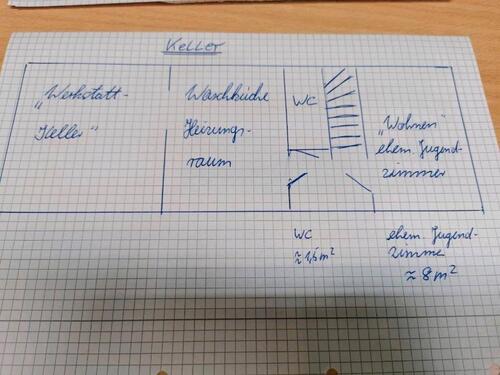 Keller
"Werkstatt-
Keller"
Waschküche
Heizungs-
raum
WC
"Wohnen"
ehem. Jugend-
zimmer
WC
≈ 1,5 m²
ehem. Jugend-
zimme
≈ 8 m²